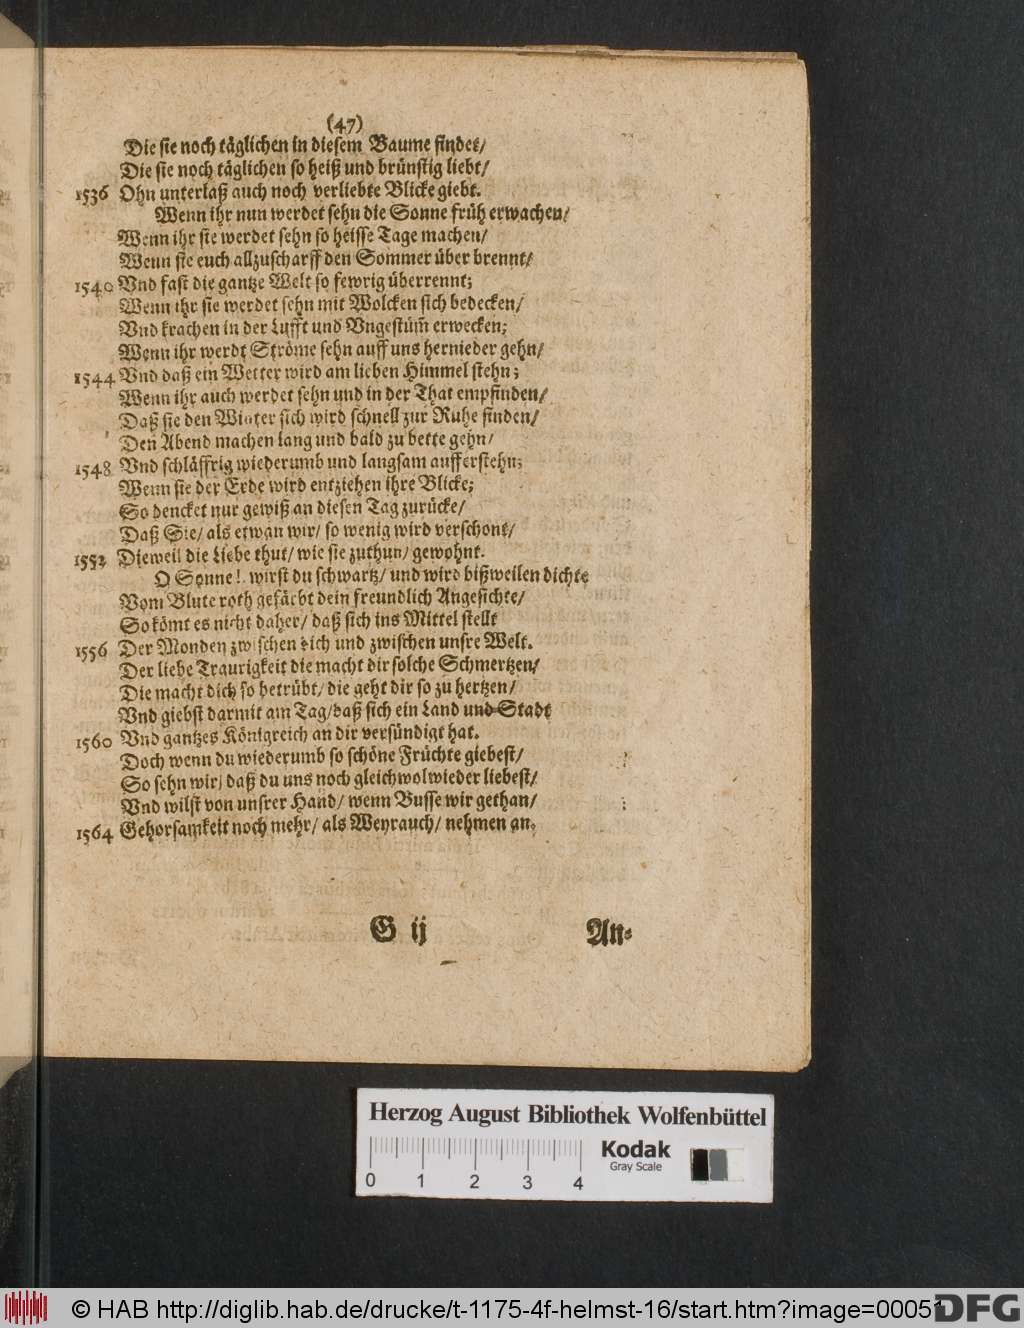 (47)
Die sie noch täglichen in diesem Baume findet/
Die sie noch täglichen so heiß und brünstig liebt/
1536 Ohn unterlaß auch noch verliebte Blicke giebt.
Wenn ihr nun werdet sehn die Sonne früh erwachen/
Wenn ihr sie werdet sehn so heisse Tage machen/
Wenn sie euch allzuscharff den Sommer über brennt/
1540 Vnd fast die gantze Welt so fewrig überrennt;
Wenn ihr sie werdet sehn mit Wolcken sich bedecken/
Vnd krachen in der Lufft und Vngestüm̃ erwecken;
Wenn ihr werdt Ströme sehn auff uns hernieder gehn/
1544 Vnd daß ein Wetter wird am lieben Himmel stehn;
Wenn ihr auch werdet sehn und in der That empfinden/
Daß sie den Winter sich wird schnell zur Ruhe finden/
Den Abend machen lang und bald zu bette gehn/
1548 Vnd schläffrig wiederumb und langsam aufferstehn;
Wenn sie der Erde wird entziehen ihre Blicke;
So dencket nur gewiß an diesen Tag zurücke/
Daß Sie/ als etwan wir/ so wenig wird verschont/
1552 Dieweil die Liebe thut/ wie sie zuthun/ gewohnt.
O Sonne! wirst du schwartz/ und wird bißweilen dichte
Vom Blute roth gefärbt dein freundlich Angesichte/
So kömt es nicht daher/ daß sich ins Mittel stellt
1556 Der Monden zwischen dich und zwischen unsre Welt.
Der liebe Traurigkeit die macht dir solche Schmertzen/
Die macht dich so betrübt/ die geht dir so zu hertzen/
Vnd giebst darmit am Tag/ daß sich ein Land und Stadt
1560 Vnd gantzes Königreich an dir versündigt hat.
Doch wenn du wiederumb so schöne Früchte giebest/
So sehn wir/ daß du uns noch gleichwol wieder liebest/
Vnd wilst von unsrer Hand/ wenn Busse wir gethan/
1564 Gehorsamkeit noch mehr/ als Weyrauch/ nehmen an.
G ij An-
Herzog August Bibliothek Wolfenbüttel
Kodak
Gray Scale
0 1 2 3 4
© HAB http://diglib.hab.de/drucke/t-1175-4f-helmst-16/start.htm?image=00051
DFG